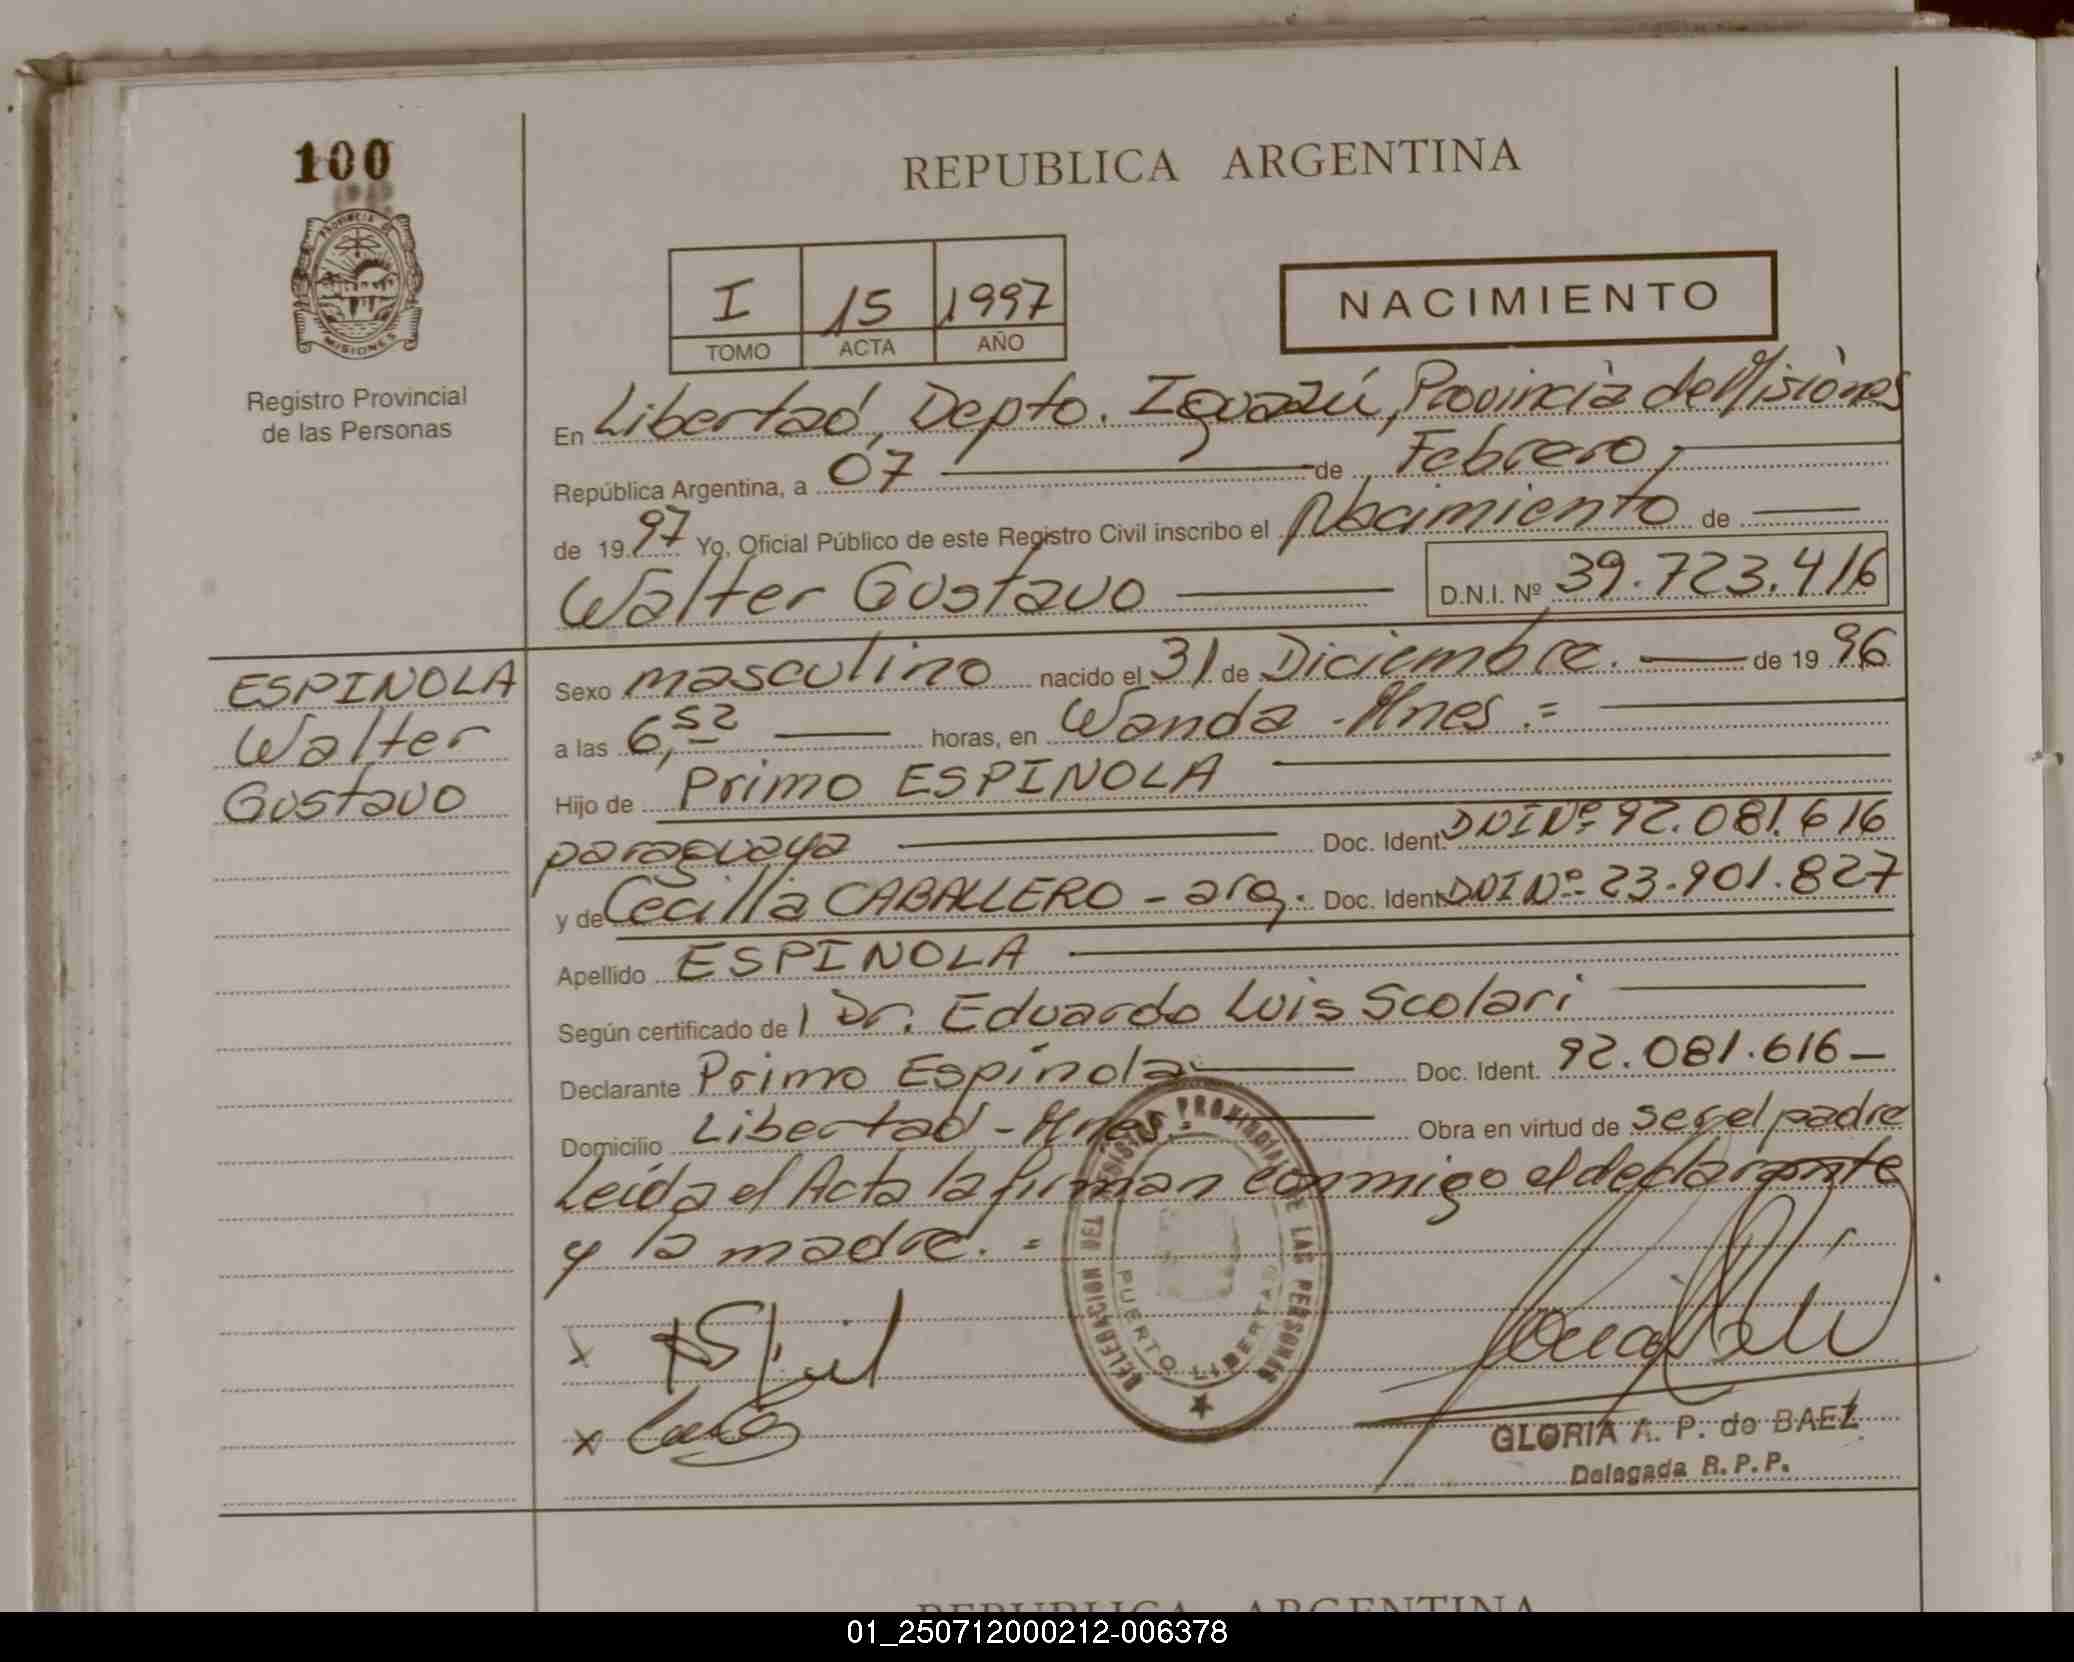 100
PROVINCIA DE
MISIONES
Registro Provincial
de las Personas
REPUBLICA ARGENTINA
I 15 1997
TOMO ACTA AÑO
NACIMIENTO
En Libertad, Depto. Iguazú, Provincia de Misiones
República Argentina, a 07 de Febrero
de 1997 Yo, Oficial Público de este Registro Civil inscribo el Nacimiento de
Walter Gustavo D.N.I. Nº 39.723.416
ESPINOLA
Walter
Gustavo
Sexo masculino nacido el 31 de Diciembre. de 1996
a las 6,52 horas, en Wanda - Mnes.=
Hijo de Primo ESPINOLA
paraguaya Doc. Ident. DNI Nº 92.081.616
y de Cecilia CABALLERO - arg. Doc. Ident. DNI Nº 23.901.827
Apellido ESPINOLA
Según certificado de l Dr. Eduardo Luis Scolari
Declarante Primo Espínola Doc. Ident. 92.081.616-
Domicilio Libertad - Mnes.- Obra en virtud de ser el padre
Leída el Acta la firman conmigo el declarante
y la madre. =
DELEGACION DEL REGISTRO PROVINCIAL DE LAS PERSONAS
PUERTO LIBERTAD
x
x
GLORIA A. P. de BAEZ
Delegada R. P. P.
REPUBLICA ARGENTINA
01_250712000212-006378